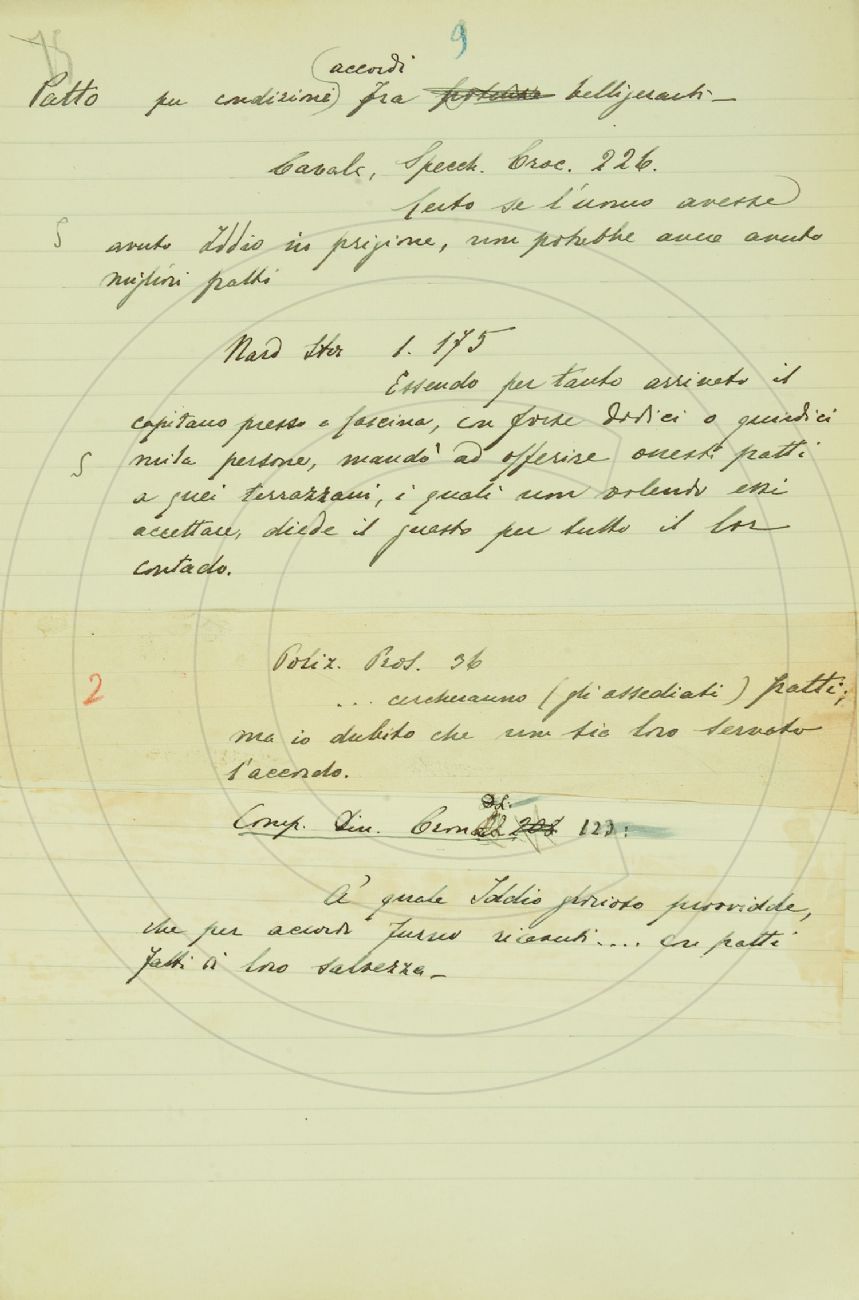 9
accordi
Patto per condizione fra belligeranti —
Cavalc, Specch. Croc. 226.
Certo se l'uomo avesse
S avuto Iddio in prigione, non potrebbe avere avuto
migliori patti
Nard Stor 1. 175
Essendo per tanto arrivato il
capitano presso a Cascina, con forse dodici o quindici
S mila persone, mandò ad offerire onesti patti
a quei terrazzani, i quali non volendo essi
accettare, diede il guasto per tutto il lor
contado.
Poliz. Pros. 36
2 ... cercheranno (gli assediati) patti;
ma io dubito che non sia loro servato
l'accordo.
Comp. Din. Cron. 123:
A' quale Iddio glorioso provvidde,
che per accordi furno ricevuti.... con patti
fatti di loro salvezza —